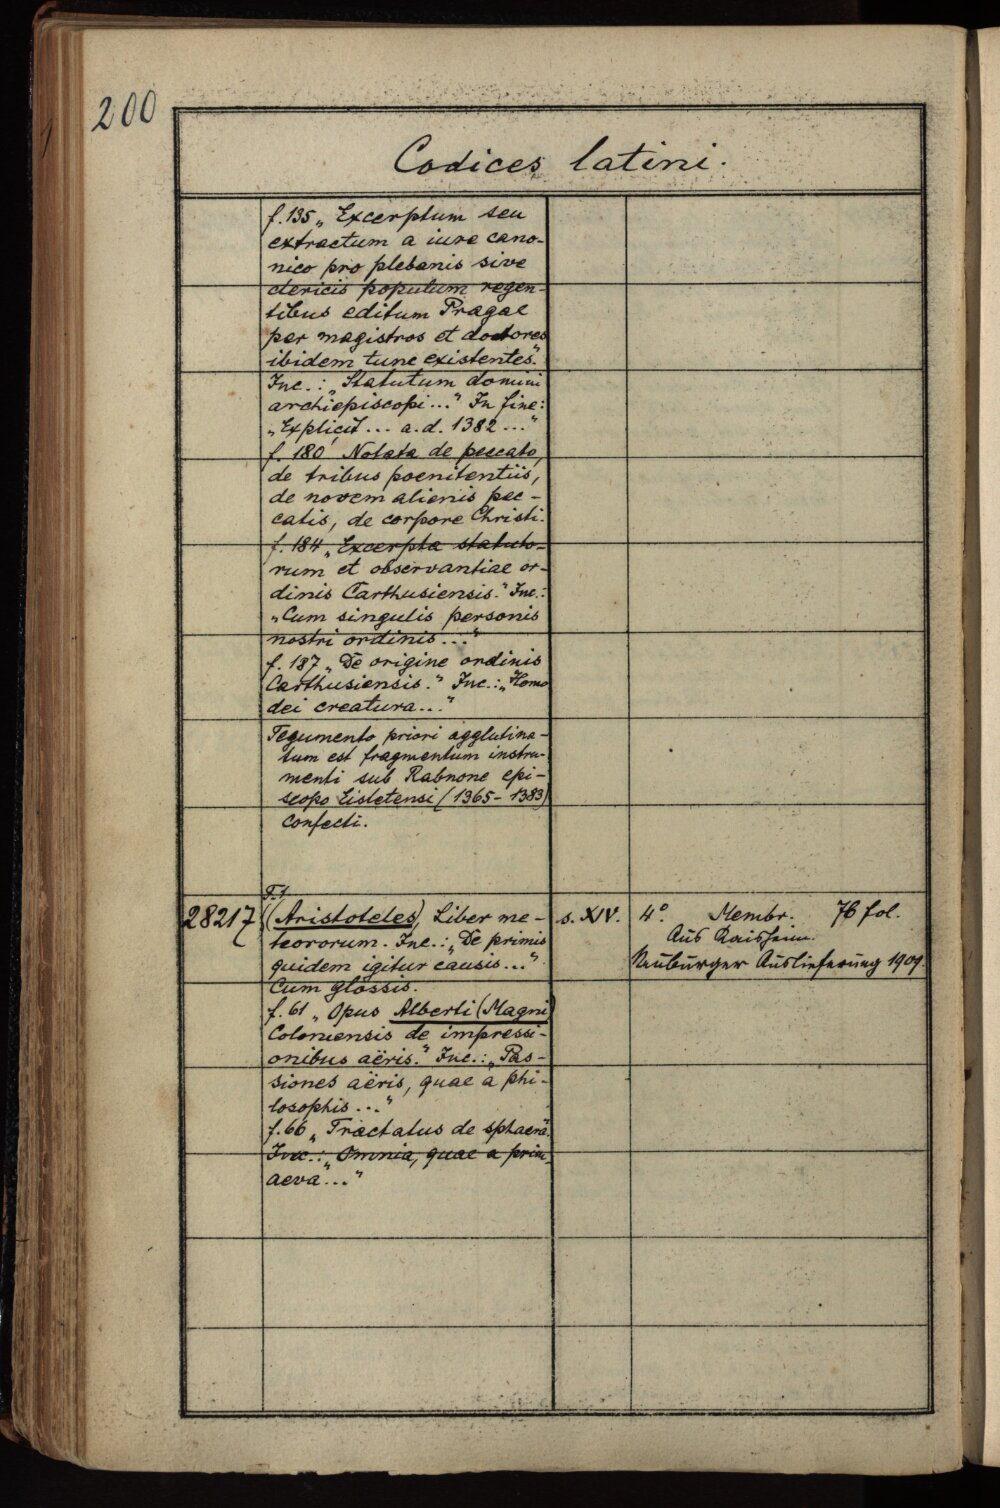 200
Codices latini.
f. 135 „Excerptum seu
extractum a iure cano-
nico pro plebanis sive
clericis populum regen-
tibus editum Pragae
per magistros et doctores
ibidem tunc existentes“.
Inc.: „Statutum domini
archiepiscopi...“ In fine:
„Explicit... a.d. 1382...“
f. 180' Notata de peccato,
de tribus poenitentiis,
de novem alienis pec-
catis, de corpore Christi.
f. 184 „Excerpta statuto-
rum et observantiae or-
dinis Carthusiensis.“ Inc.:
„Cum singulis personis
nostri ordinis...“
f. 187 „De origine ordinis
Carthusiensis.“ Inc.: „Homo
dei creatura...“
Tegumento priori agglutina-
tum est fragmentum instru-
menti sub Rabnone epi-
scopo Eistetensi (1365-1383)
confecti.
F. 1
28217 (Aristoteles) Liber me- s. XIV. 4°. Membr. 76 fol.
teororum. Inc.: „De primis Aus Kaisheim.
quidem igitur causis...“ Neuburger Auslieferung 1909.
Cum glossis.
f. 61 „Opus Alberti (Magni)
Coloniensis de impressi-
onibus aëris.“ Inc.: „Pas-
siones aëris, quae a phi-
losophis...“
f. 66 „Tractatus de sphaera“.
Inc.: „Omnia, quae a prim-
aeva...“